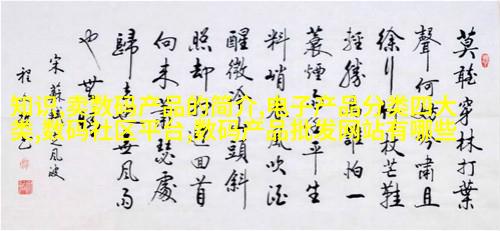 知识,卖数码产品的简介,电子产品分类四大
类,数码社区平台,数码产品批发网站有哪些
莫聽穿林打葉
聲何妨吟嘯且
徐行竹杖芒鞋
輕勝馬誰怕一
蓑煙雨任平生
料峭春風吹酒
醒微冷山頭斜
照却相迎回首
向来蕭瑟處
歸去也無風雨
也無晴
宋蘇軾定風波